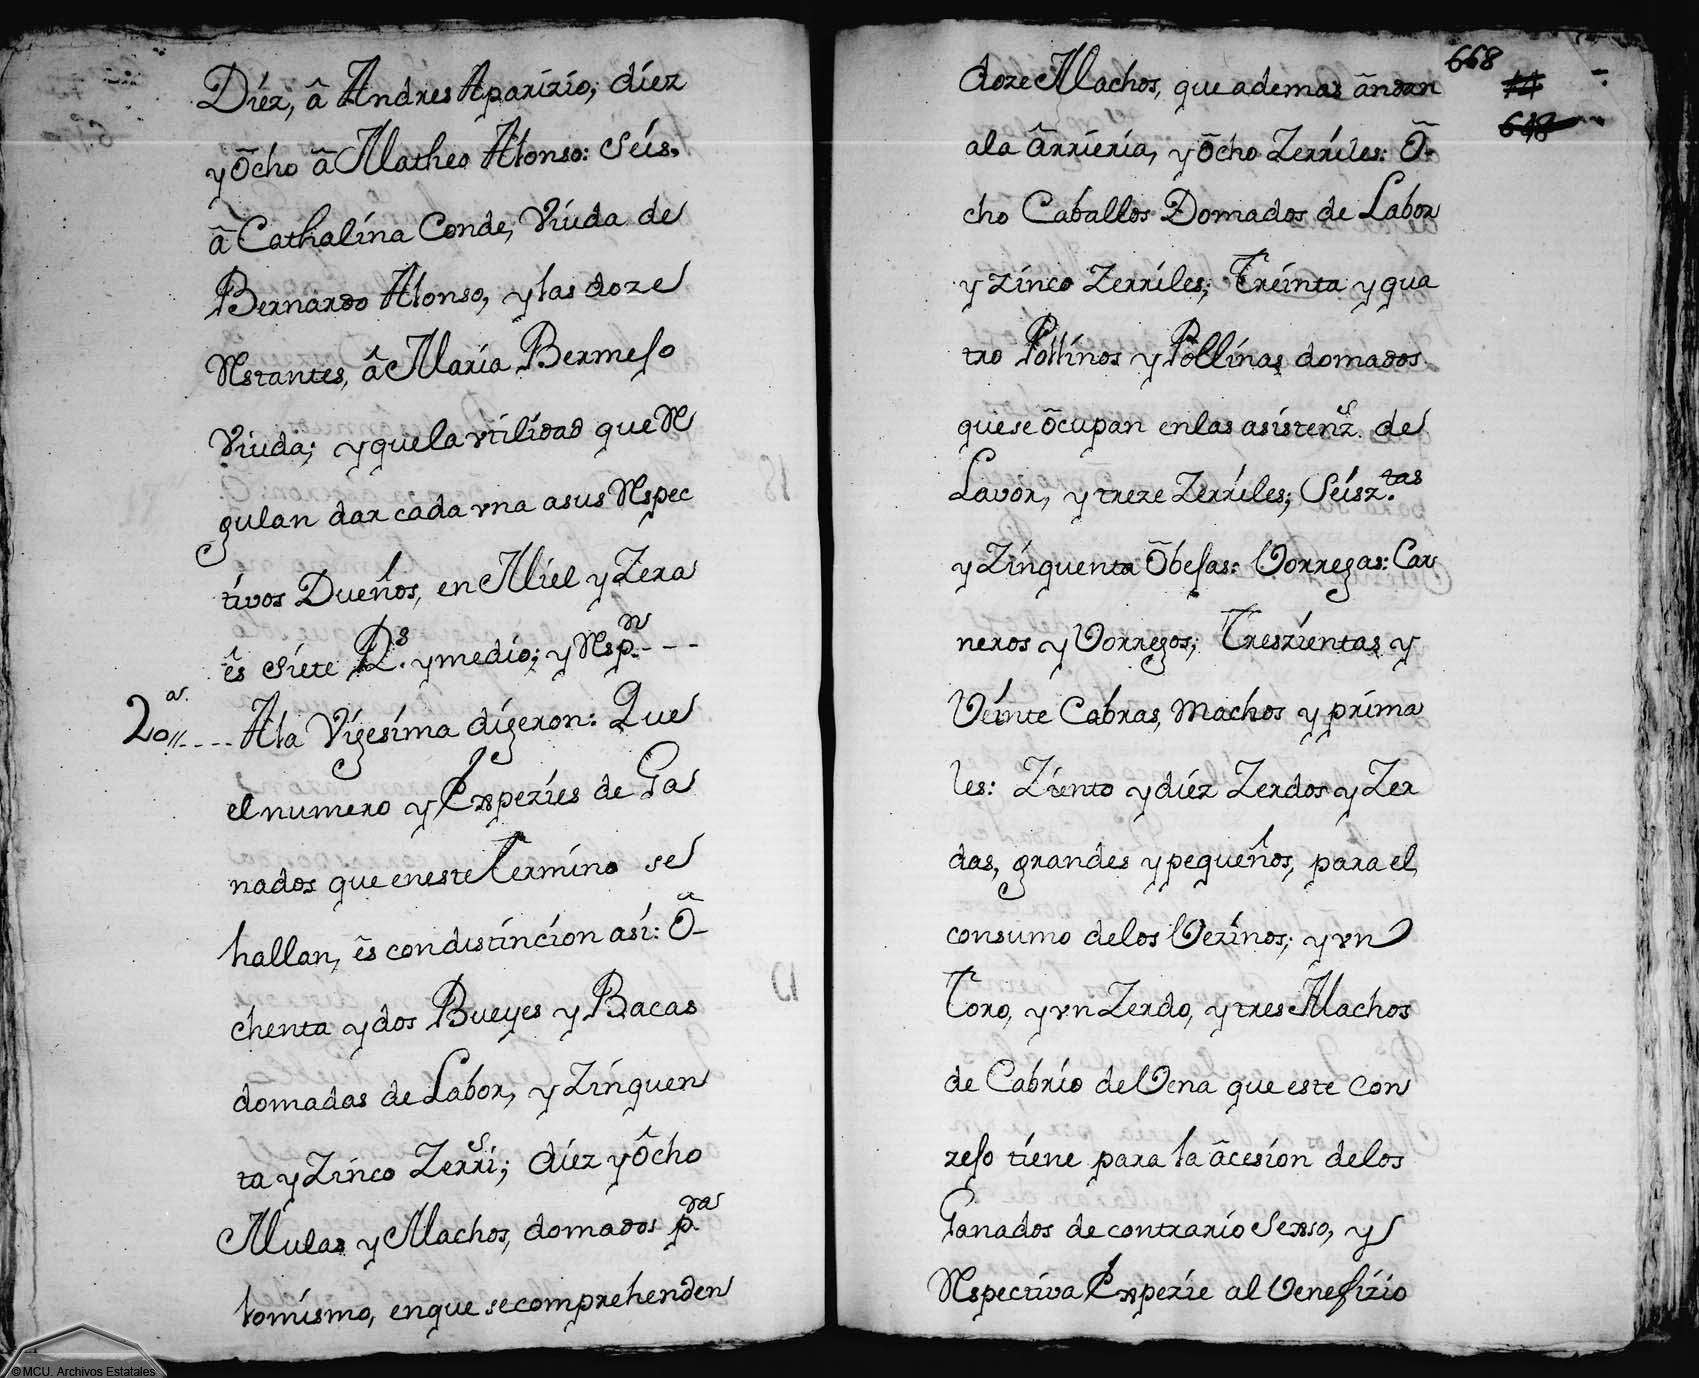 Diez, â Andres Aparizio; diez
y õcho ã Matheo Alonso: Seis,
ã Cathalina Conde, Viuda de
Bernardo Alonso, y las doze
Restantes, â Maria Bermeso
Viuda; y que la vtilidad que Re
gulan dar cada vna a sus Respec
tivos Dueños, en Miel y Zera
ês siete Rs. y medio; y Resp.n - - -
20,,ar. - - - - A la Vigesima digeron: Que
el numero y Expezies de Ga
nados que en este Termino se
hallan, ẽs con distincion asi: Õ-
chenta y dos Bueyes y Bacas
domadas de Labor, y Zinquen
ta y Zinco Zerris; diez y ôcho
Mulas y Machos, domados p.ra
lo mismo, en que se comprehenden
668
11
648
doze Machos, que ademas ãndan
a la ãrrieria, y õcho Zerriles: Õ-
cho Caballos Domados de Labor
y Zinco Zerriles; Treinta y qua
tro Pollinos y Pollinas domados
que se õcupan en las asistenz.s de
Lavor, y treze Zerriles; Seisz.tas
y Zinquenta Õbesas: Vorregas: Car
neros y Vorregos; Treszientas y
Veinte Cabras, Machos y prima
les: Ziento y diez Zerdos y Zer
das, grandes y pequeños, para el
consumo de los Vezinos; y vn
Toro, y vn Zerdo, y tres Machos
de Cabrio de Vena que este Con
zeso tiene para la ãcesion de los
Ganados de contrario Sexso, y
Respectiva Expezie al Venefizio
©MCU. Archivos Estatales